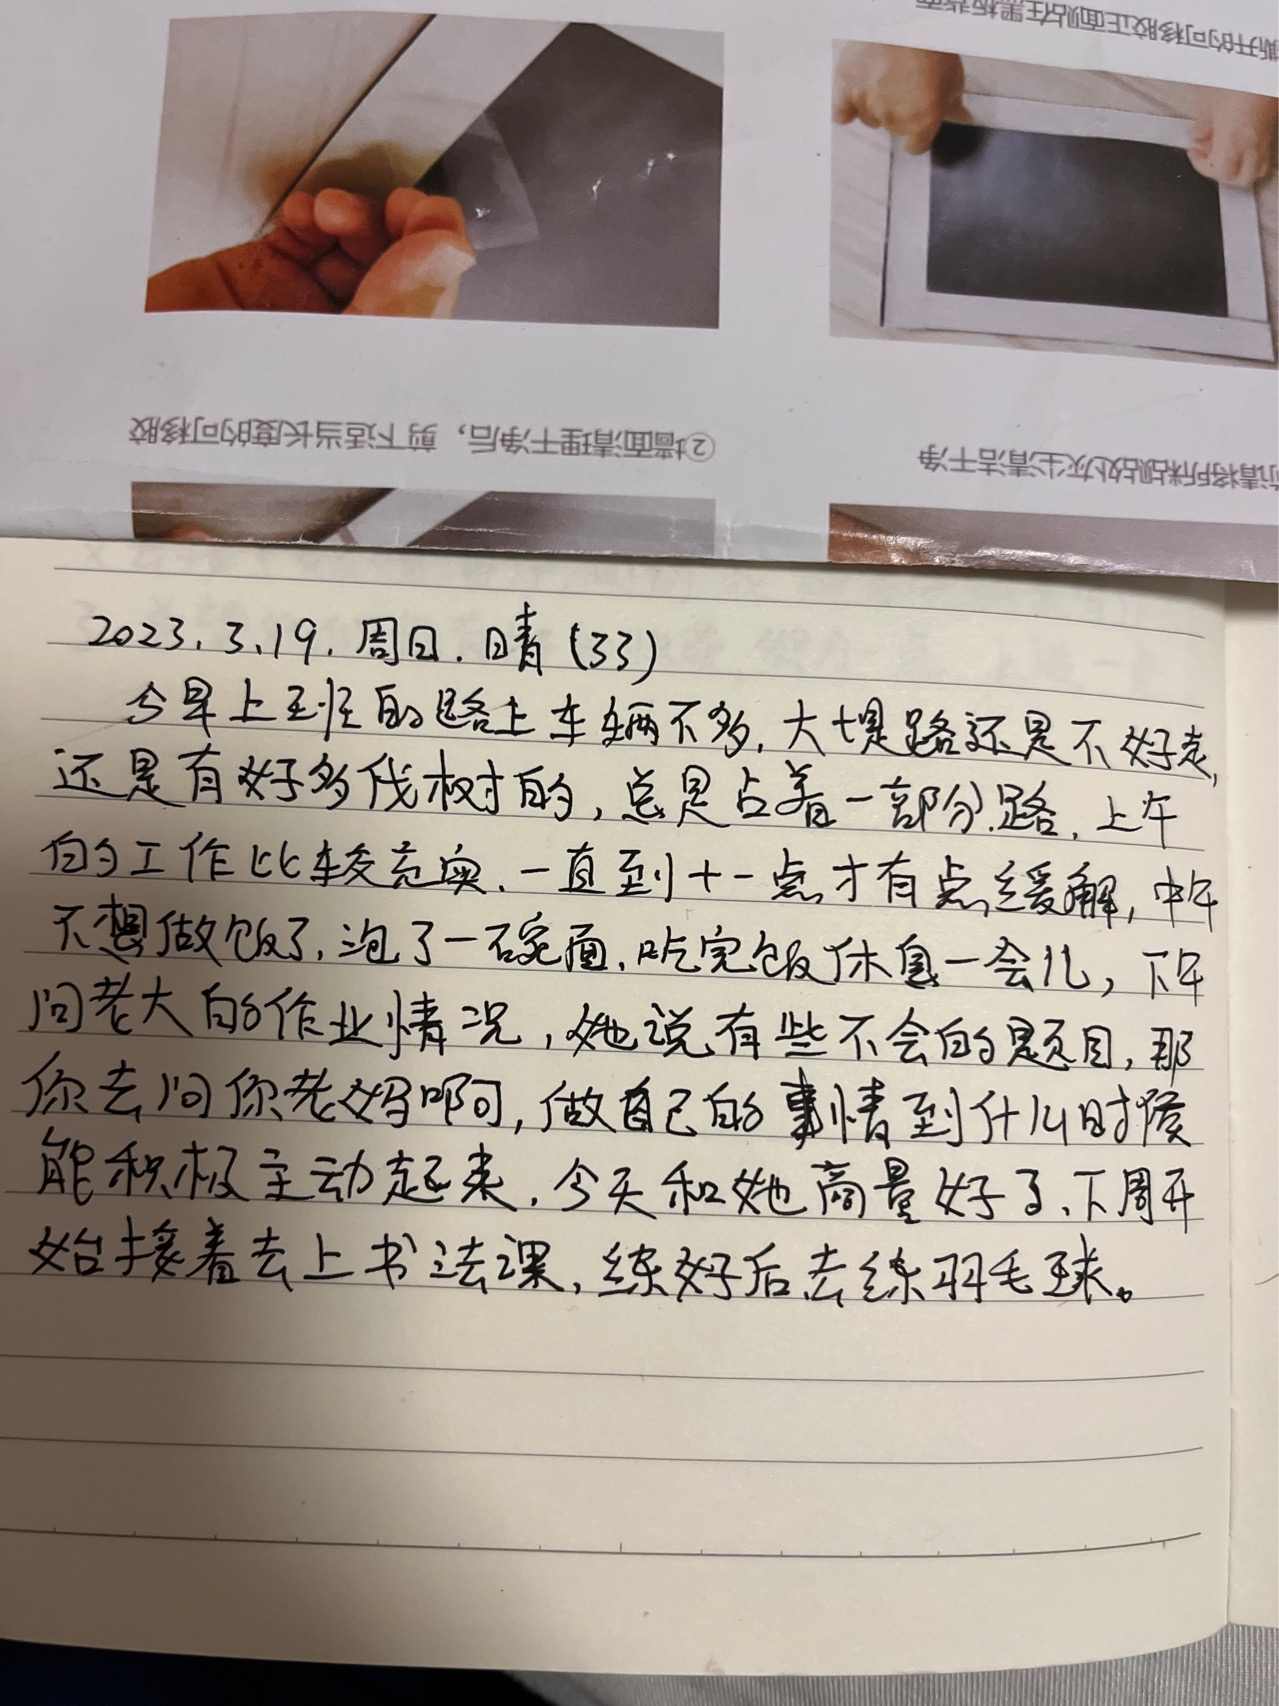 撕开的可移胶正面贴在黑板背面
②墙面清理干净后，剪下适当长度的可移胶
请将所粘贴处灰尘清洁干净
2023.3.19.周日.晴(33)
今早上到的路上车辆不多,大堤路还是不好走,
还是有好多伐树的,总是占着一部分路,上午
的工作比较充实.一直到十一点才有点缓解,中午
不想做饭了,泡了一碗面,吃完饭休息一会儿,下午
问老大的作业情况,她说有些不会的题目,那
你去问你老妈啊,做自己的事情到什么时候
能积极主动起来.今天和她商量好了、下周开
始接着去上书法课,练好后去练羽毛球。